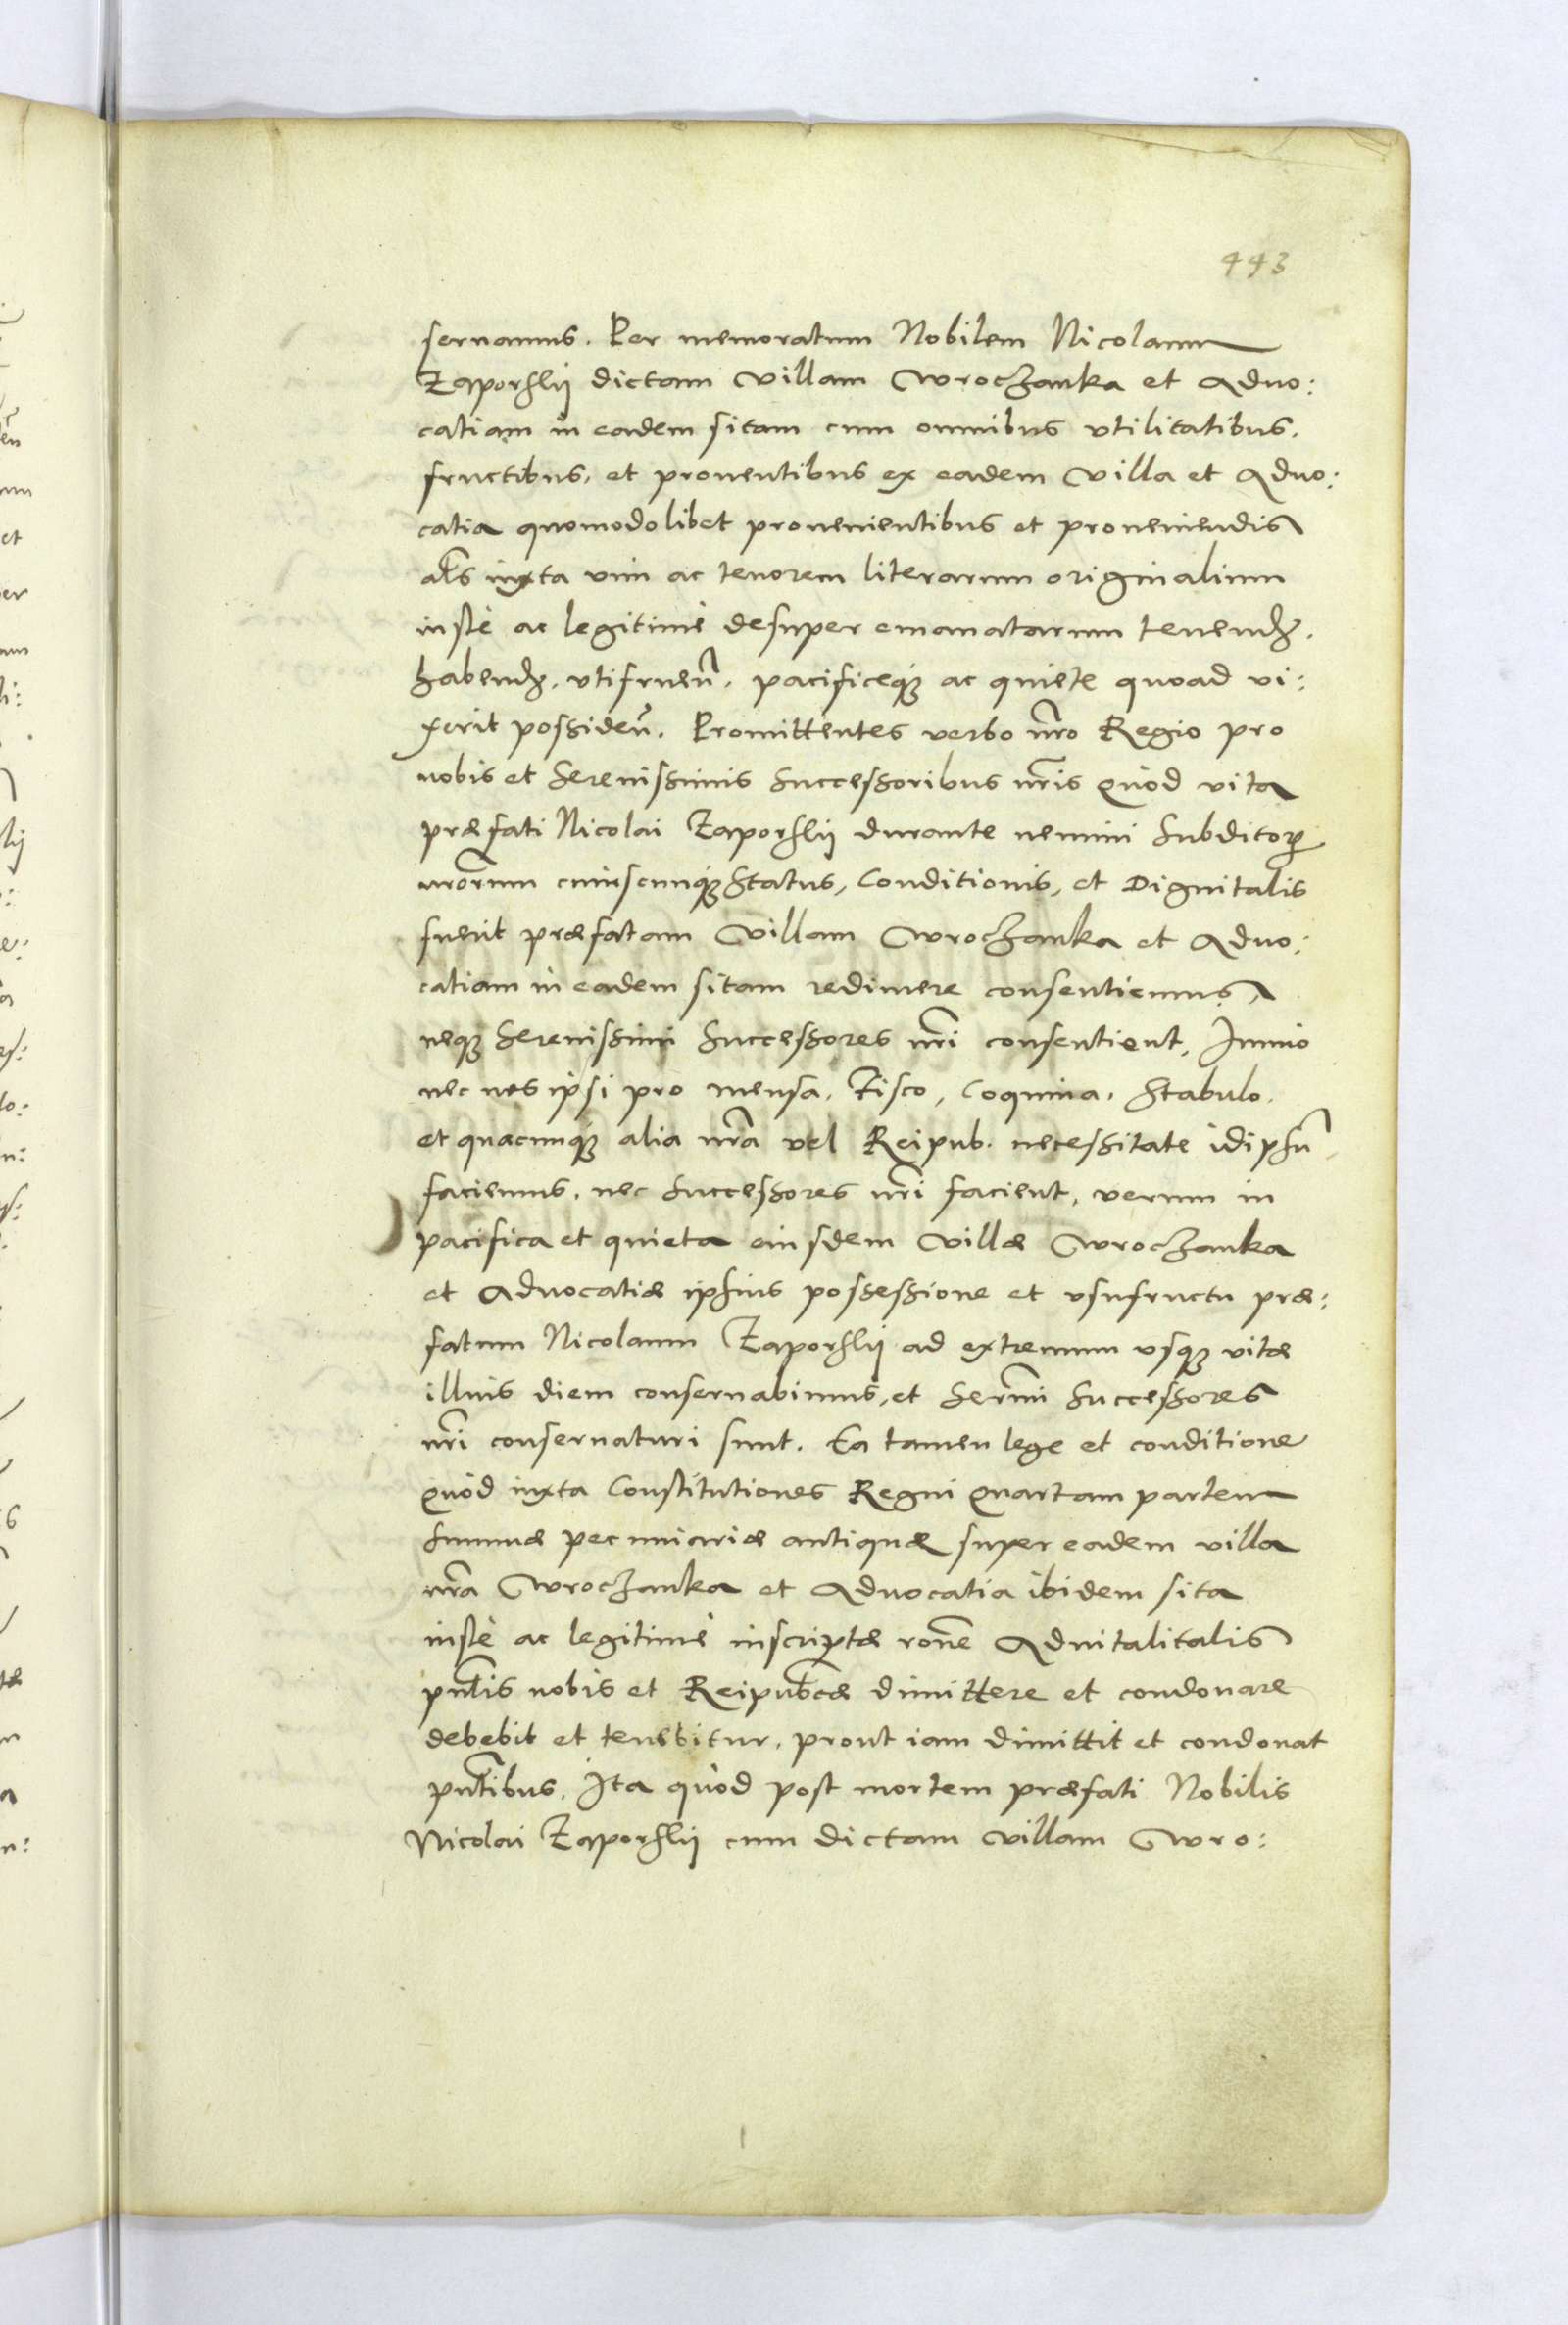 443
seruamus. Per memoratum Nobilem Nicolaum
Zaporslij dictam Villam Wroczanka et Aduo:
catiam in eadem sitam cum omnibus vtilitatibus.
fructibus, et prouentibus ex eadem Villa et Aduo:
catia quomodolibet prouenientibus et proueniendis
als iuxta vim ac tenorem literarum originalium
iustè ac legitimè desuper emanatarum tenend.
habend. vtifruen. pacificeq; ac quiete quoad vi:
xerit possiden. Promittentes verbo nro Regio pro
nobis et Serenissimis Successoribus nris Quod vita
præfati Nicolai Zaporslij durante nemini Subditor
nrorum cuiuscunq; Status, Conditionis, et Dignitatis
fuerit præfatam Villam Wroczanka et Aduo:
catiam in eadem sitam redimere consentiemus,
neq; Serenissimi Successores nri consentient, Immo
nec nos ipsi pro mensa, Fisco, Coquina, Stabulo,
et quacunq; alia nra vel Reipub. necessitate idipsu
faciemus, nec Successores nri facient, verum in
pacifica et quieta eiusdem Villæ Wroczanka
et Aduocatiæ ipsius possessione et vsufructu præ:
fatum Nicolaum Zaporslij ad extremum vsq; vitæ
illius diem conseruabimus, et Sermi Successores
nri conseruaturi sunt. Ea tamen lege et conditione
Quòd iuxta Constitutiones Regni Quartam partem
Summæ pecuniariæ antiquæ super eadem villa
nra Wroczanka et Aduocatia ibidem sita
iustè ac legitimè inscriptæ rone Aduitalitatis
pntis nobis et Reipubcæ dimittere et condonare
debebit et tenebitur, prout iam dimittit et condonat
pntibus. Ita quòd post mortem præfati Nobilis
Nicolai Zaporslij cum dictam villam Wro: